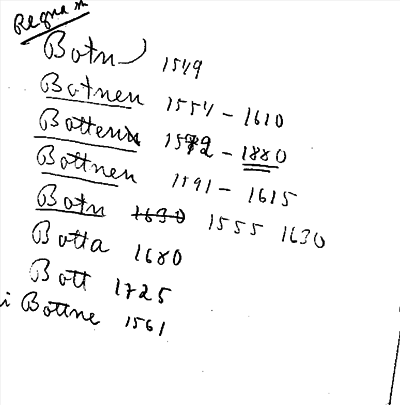 Botn 1549
Botnen 1554 - 1610
Bottenn 1572 - 1880
Bottnen 1591 - 1615
Botn 1630 1555 1630
Botta 1680
Bott 1725
i Bottne 1561